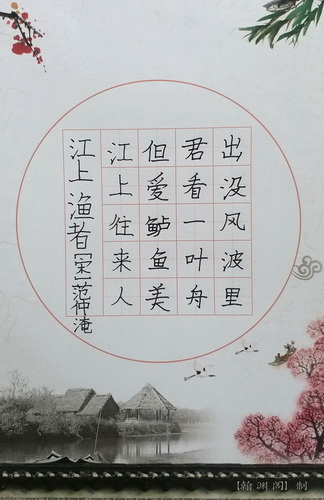 江上渔者[宋]范仲淹
江上往来人
但爱鲈鱼美
君看一叶舟
出没风波里
【翰渊阁】制